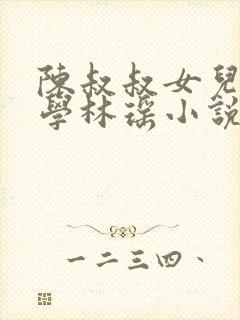 陳叔叔女兒
學林瑤小說
一二三四、